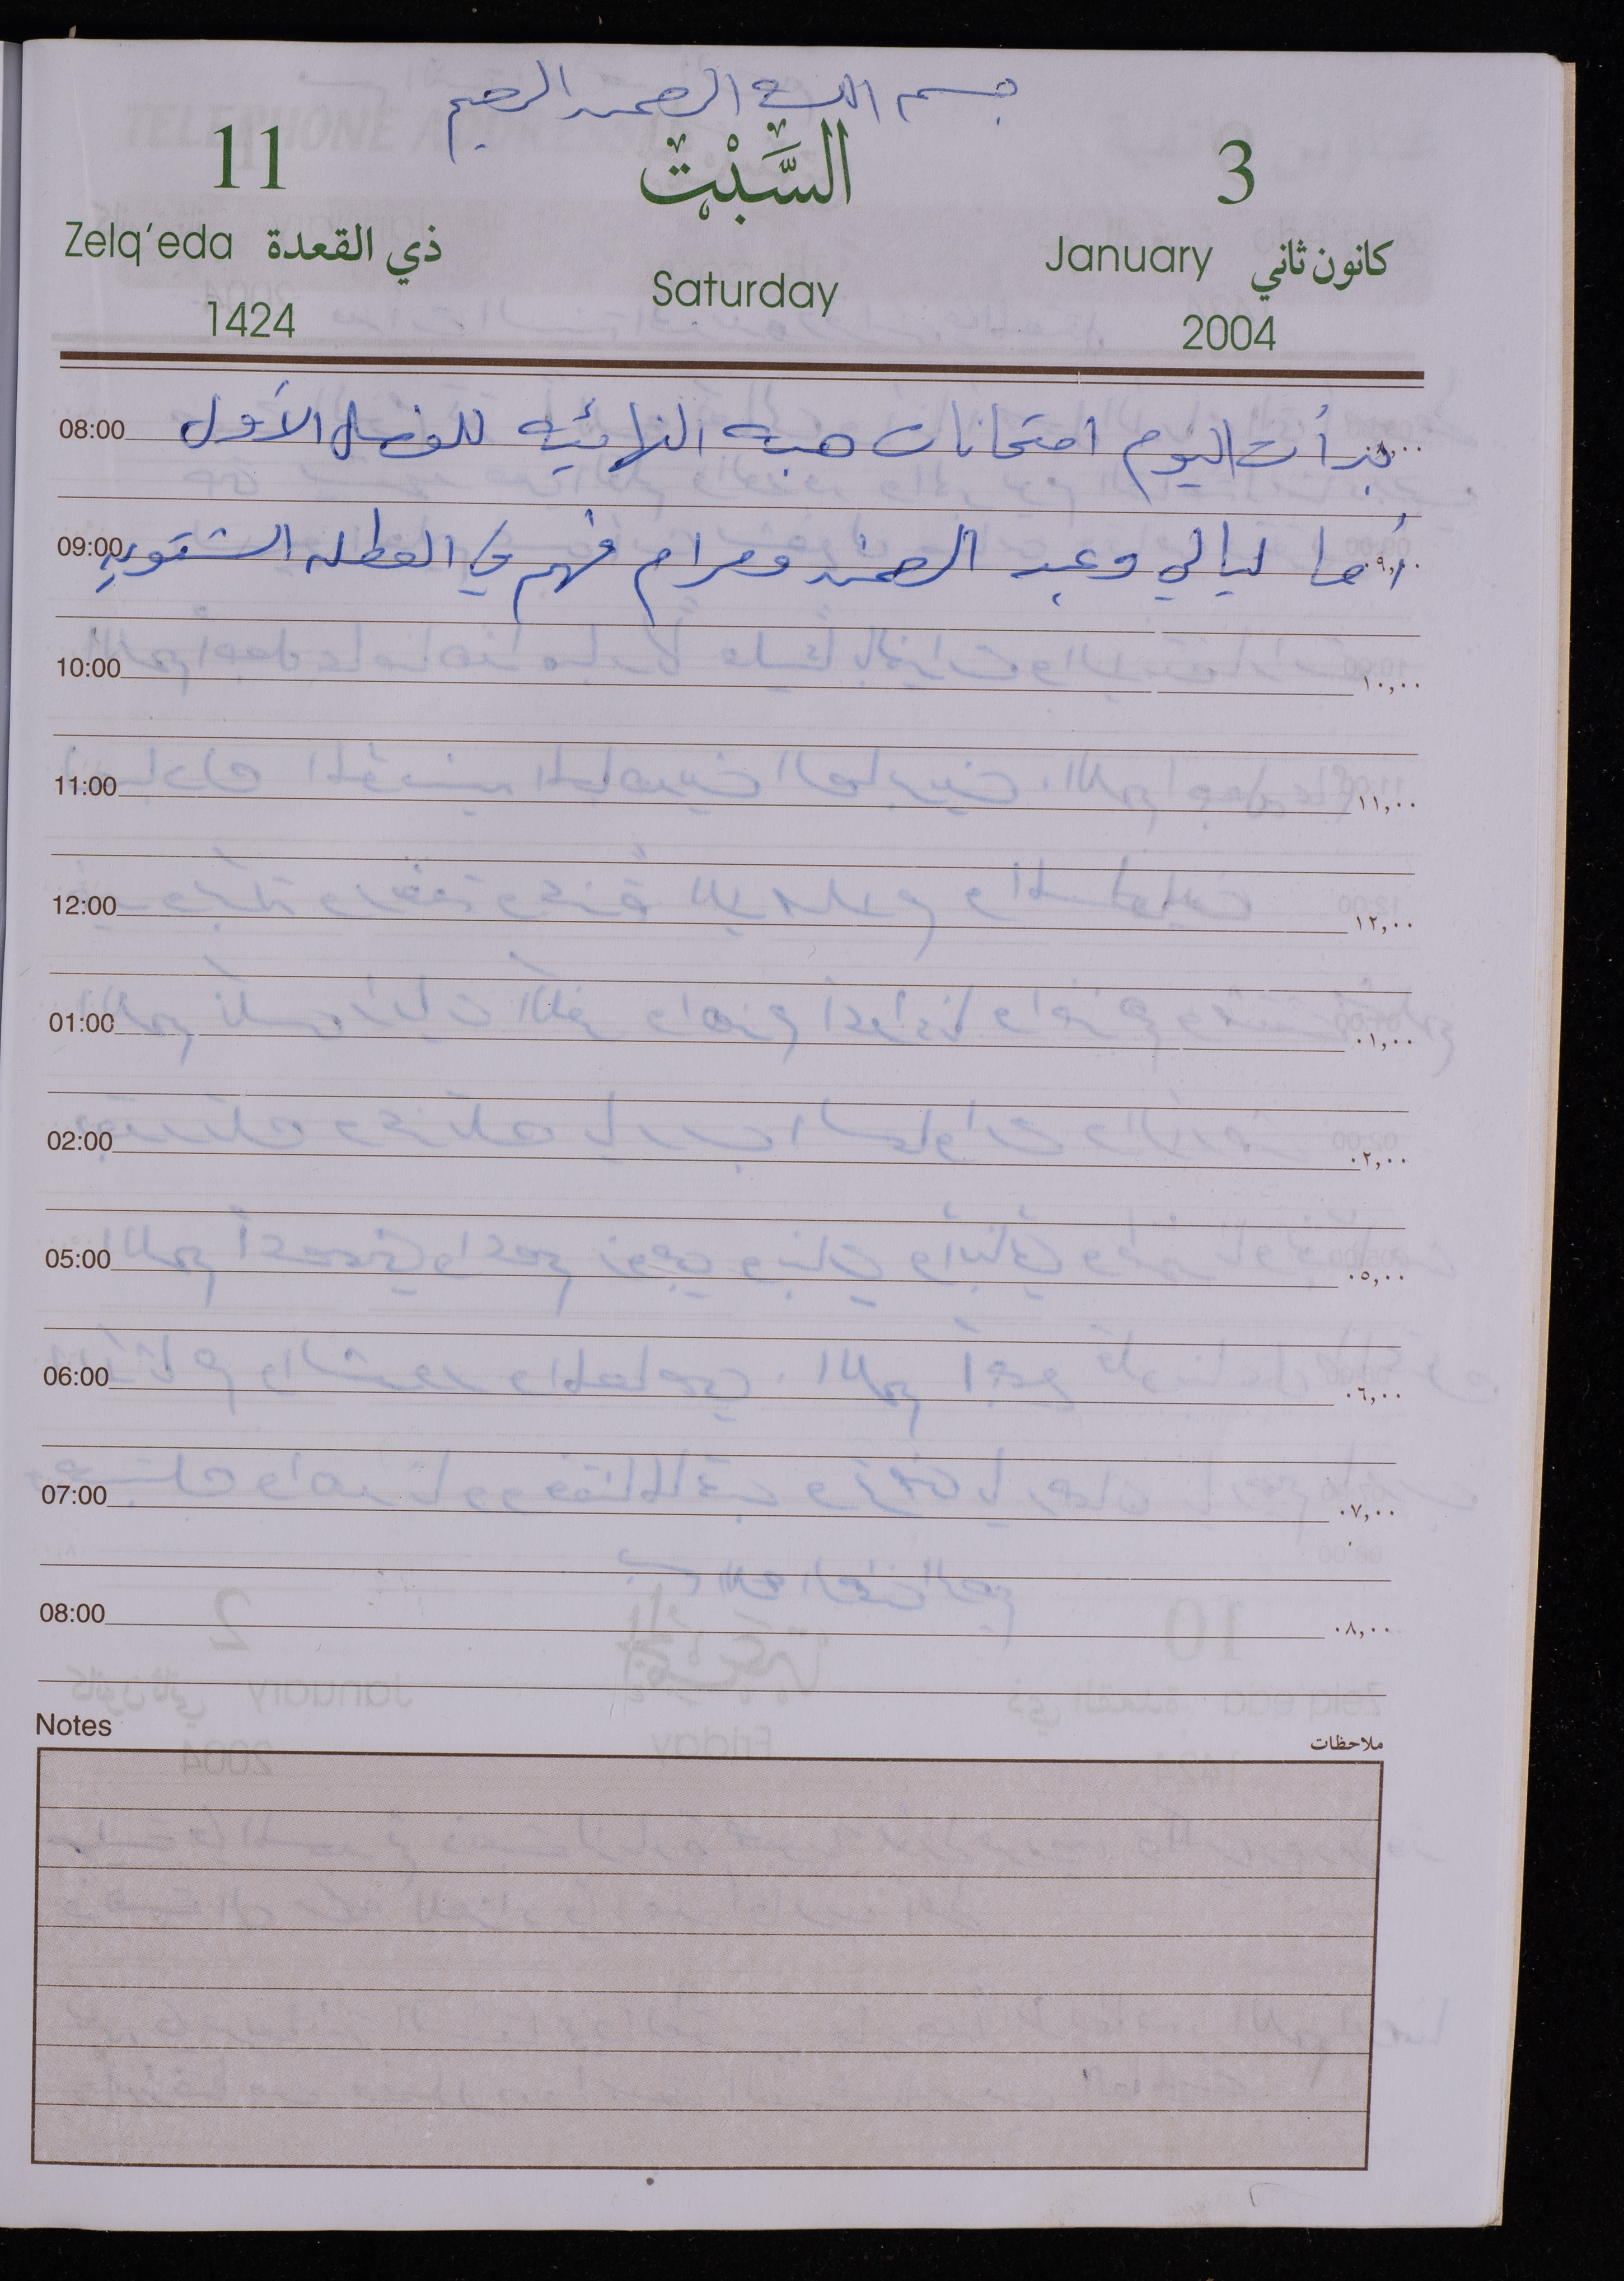 بسم الله الرحمن الرحيم
11 السَّبْت 3
Zelq'eda ذي القعدة Saturday January كانون ثاني
1424 2004
08:00 بدأت اليوم امتحانات هبه النهائيه للفصل الأول ٠٨,٠٠
09:00 أما ليالي وعبد الرحمن ومرام فهم في العطله الشتويه ٠٩,٠٠
10:00 ١٠,٠٠
11:00 ١١,٠٠
12:00 ١٢,٠٠
01:00 ٠١,٠٠
02:00 ٠٢,٠٠
05:00 ٠٥,٠٠
06:00 ٠٦,٠٠
07:00 ٠٧,٠٠
08:00 ٠٨,٠٠
Notes ملاحظات